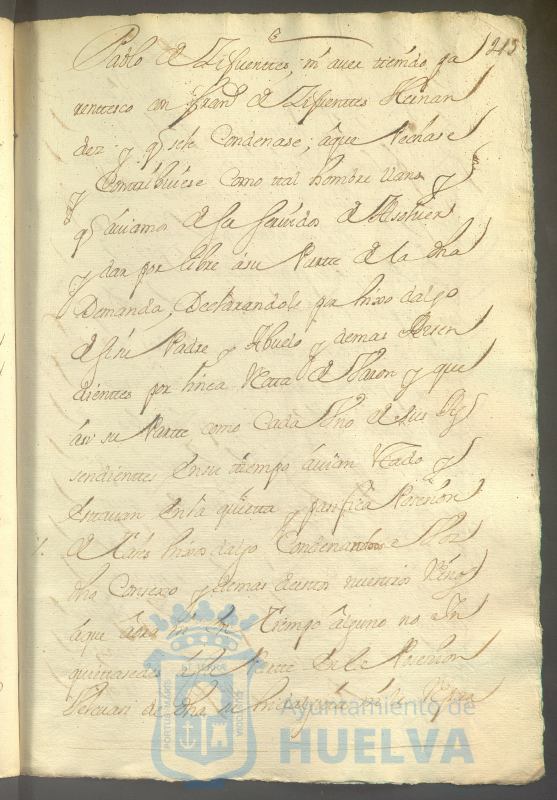 213
Pablo de Zifuentes, ni aver tenido pa
rentesco con Fran.co de Zifuentes Hernan
dez y q.e se le Condenase, a que Pechase
y Contribuiese Como tal hombre llano y
q.e aviamos de ser servidos de Absolver
y dar por libre a su Parte de la dha
Demanda, Declarandole por hixo dalgo
de si su Padre y Abuelo y demas Desen
dientes por linea Recta de Baron y que
asi su Parte como Cada Uno de sus
sendientes en su tiempo avian
estavan en la quieta y pasifica Posesion
de tales hixos dalgo Condenando a
dho Consexo y demas
a que aora ni en Tiempo alguno no In
quietasedes a su Parte en la Posesion
de dha su hidalguia
Ayuntamiento de
HUELVA